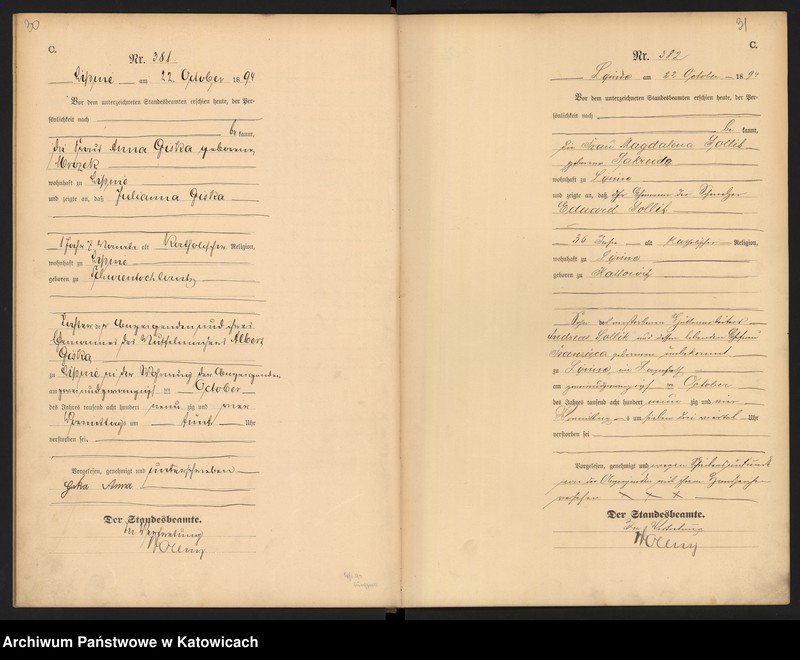 30
C.
Nr. 381
Lipine am 22 October 1894
Vor dem unterzeichneten Standesbeamten erschien heute, der Per-
sönlichkeit nach
be kannt,
die Frau Anna Giska geborene
Mrozek
wohnhaft zu Lipine
und zeigte an, daß Julianna Giska
1 Jahr 7 Monate alt Katholischer Religion,
wohnhaft zu Lipine
geboren zu
Tochter der Anzeigenden und ihres
Ehemannes des Albert
Giska
zu Lipine in der Wohnung der Anzeigenden
am zwei und zwanzig ten October
des Jahres tausend acht hundert neun zig und vier
Vormittags um Uhr
verstorben sei.
Vorgelesen, genehmigt und unterschrieben
Giska Anna
Der Standesbeamte.
In Vertretung
31
C.
Nr. 382
Lipine am 22 October 1894
Vor dem unterzeichneten Standesbeamten erschien heute, der Per-
sönlichkeit nach
be kannt,
die Frau Magdalena Sollik
geborene
wohnhaft zu Lipine
und zeigte an, daß ihr Ehemann der Schmelzer
Eduard Sollik
35 Jahre alt Katholischer Religion,
wohnhaft zu Lipine
geboren zu Kattowitz
Sohn des verstorbenen Hüttenarbeiters
Andreas Sollik und dessen lebenden Ehefrau
geborenen unbekannt
zu Lipine im Lazareth
am zwei und zwanzig ten October
des Jahres tausend acht hundert neun zig und vier
Vormittags um sieben drei viertel Uhr
verstorben sei
Vorgelesen, genehmigt und wegen Schreibensunkunde
von der Anzeigenden mit ihrem Handzeichen
versehen x x x
Der Standesbeamte.
In Vertretung
Archiwum Państwowe w Katowicach